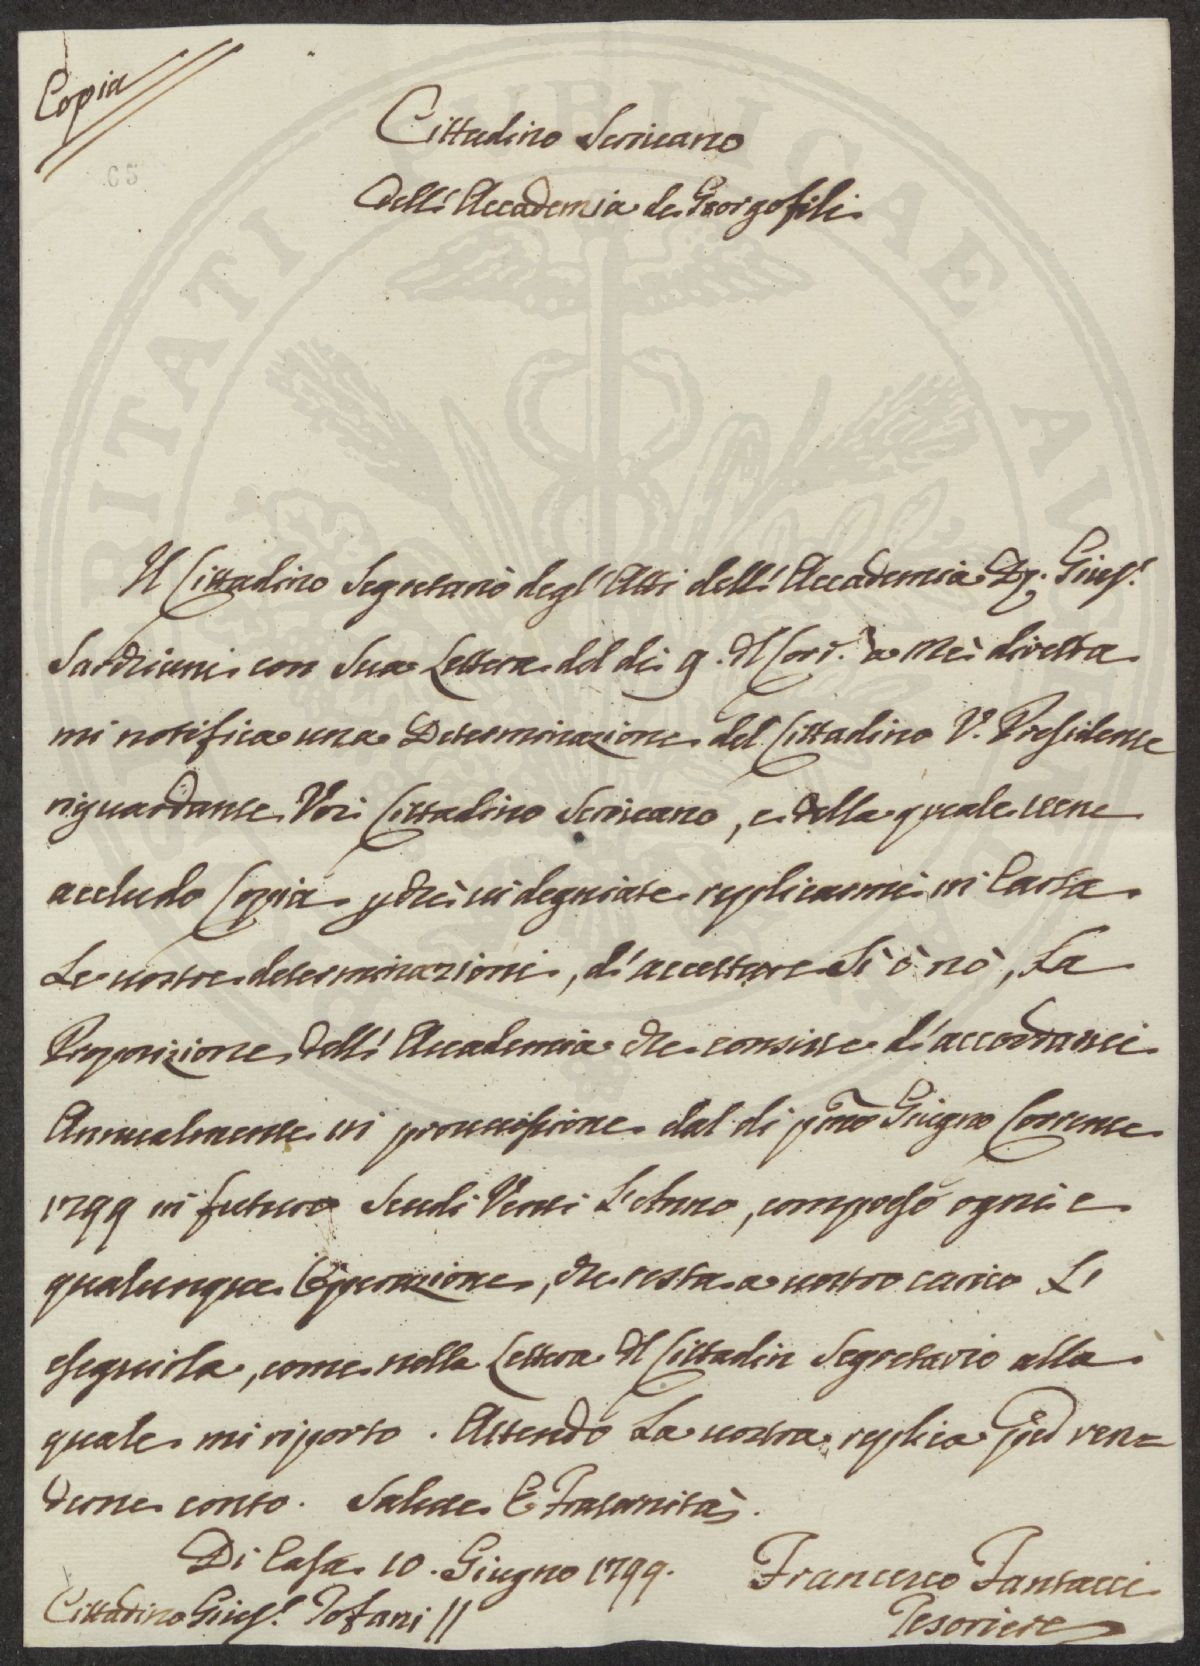 Copia
65
Cittadino Scrivano
Dell'Accademia de Georgofili
Il Cittadino Segretario degl'Atti dell'Accademia Giusẽ.
con Sua Lettera del di 9. d̃l Corr̃. à Mè diretta
mi notifica una Determinazione del Cittadino V. Presidente
riguardante Voi Cittadino Scrivano, e della quale vene
accludo Copia vi degniate replicarmi in Carta
Le vostre determinazioni, d'accettare Sì ò nò, La
Proposizione dell'Accademia che consiste d'accordarvi
Annualmente in provvisione dal di p̃mo Giugno Corrente
1799 in futuro Scudi Venti L'Anno, compreso ogni e
qualunque Operazione, che resta a vostro carico L'
eseguirla, come nella Lettera d̃l Cittadin Segretario alla
quale mi riporto. Attendo La vostra replica ren=
derne conto. Salute E Fratarnità.
Di Casa 10. Giugno 1799.
Francesco Fantacci
Cittadino Giusẽ. Tofani //
Tesoriere